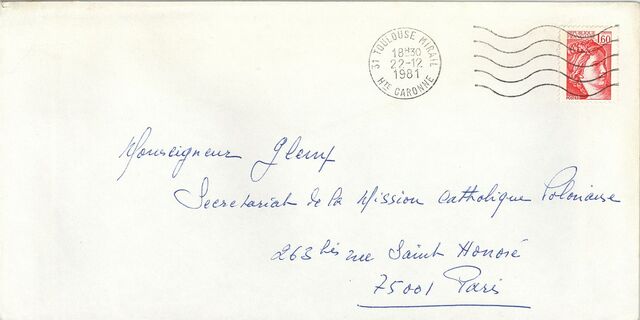 31 TOULOUSE MIRAIL
18H30
22-12
1981
HTE GARONNE
1,60
Monseigneur Glemp
Secretariat de la Mission Catholique Polonaise
263 bis rue Saint Honoré
75001 Paris